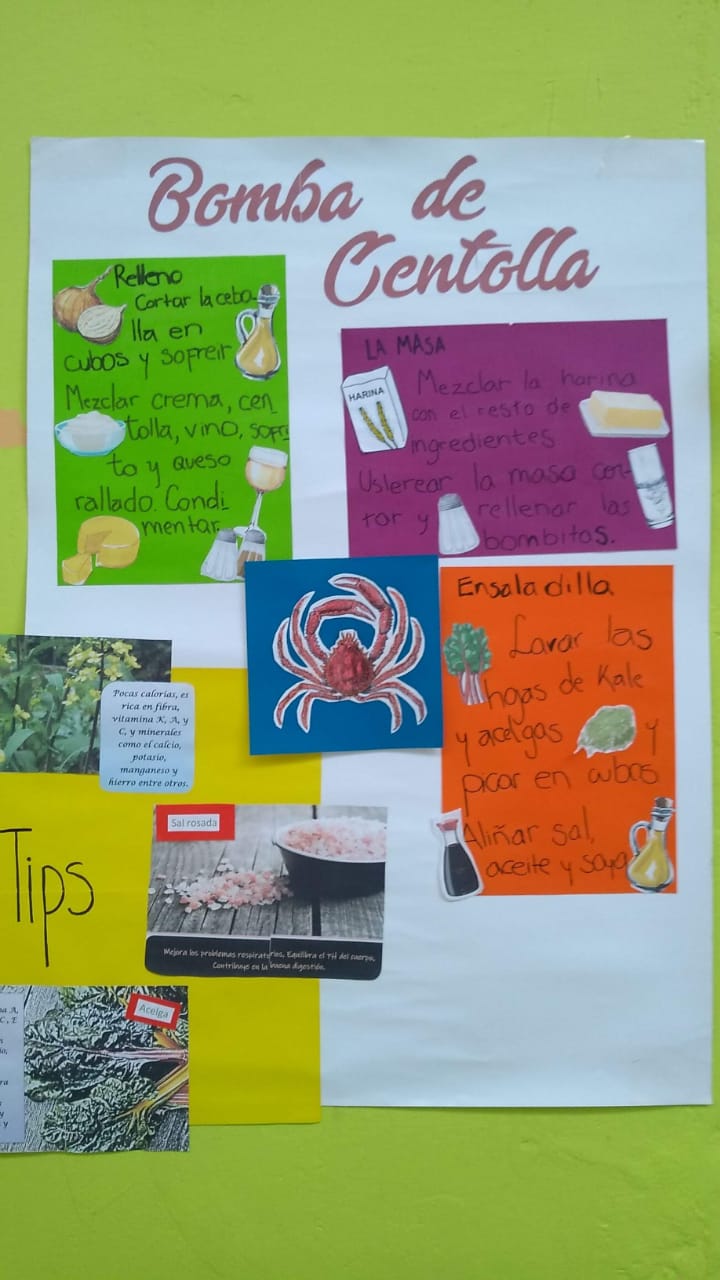 Bomba de
Centolla
Relleno
Cortar la cebo-
lla en
cubos y sofreir
Mezclar crema, cen
tolla, vino, sofri
to y queso
rallado. Condi
mentar
LA MASA
HARINA
Mezclar la harina
con el resto de
ingredientes
Uslerear la masa cor-
tar y rellenar las
bombitas.
Ensaladilla
Lavar las
hojas de Kale
y acelgas y
picar en cubos
Aliñar sal,
aceite y soya
Pocas calorías, es
rica en fibra,
vitamina K, A, y
C, y minerales
como el calcio,
potasio,
manganeso y
hierro entre otros.
Tips
Sal rosada
Mejora los problemas respiratorios, Equilibra el PH del cuerpo,
Contribuye en la buena digestión.
Acelga